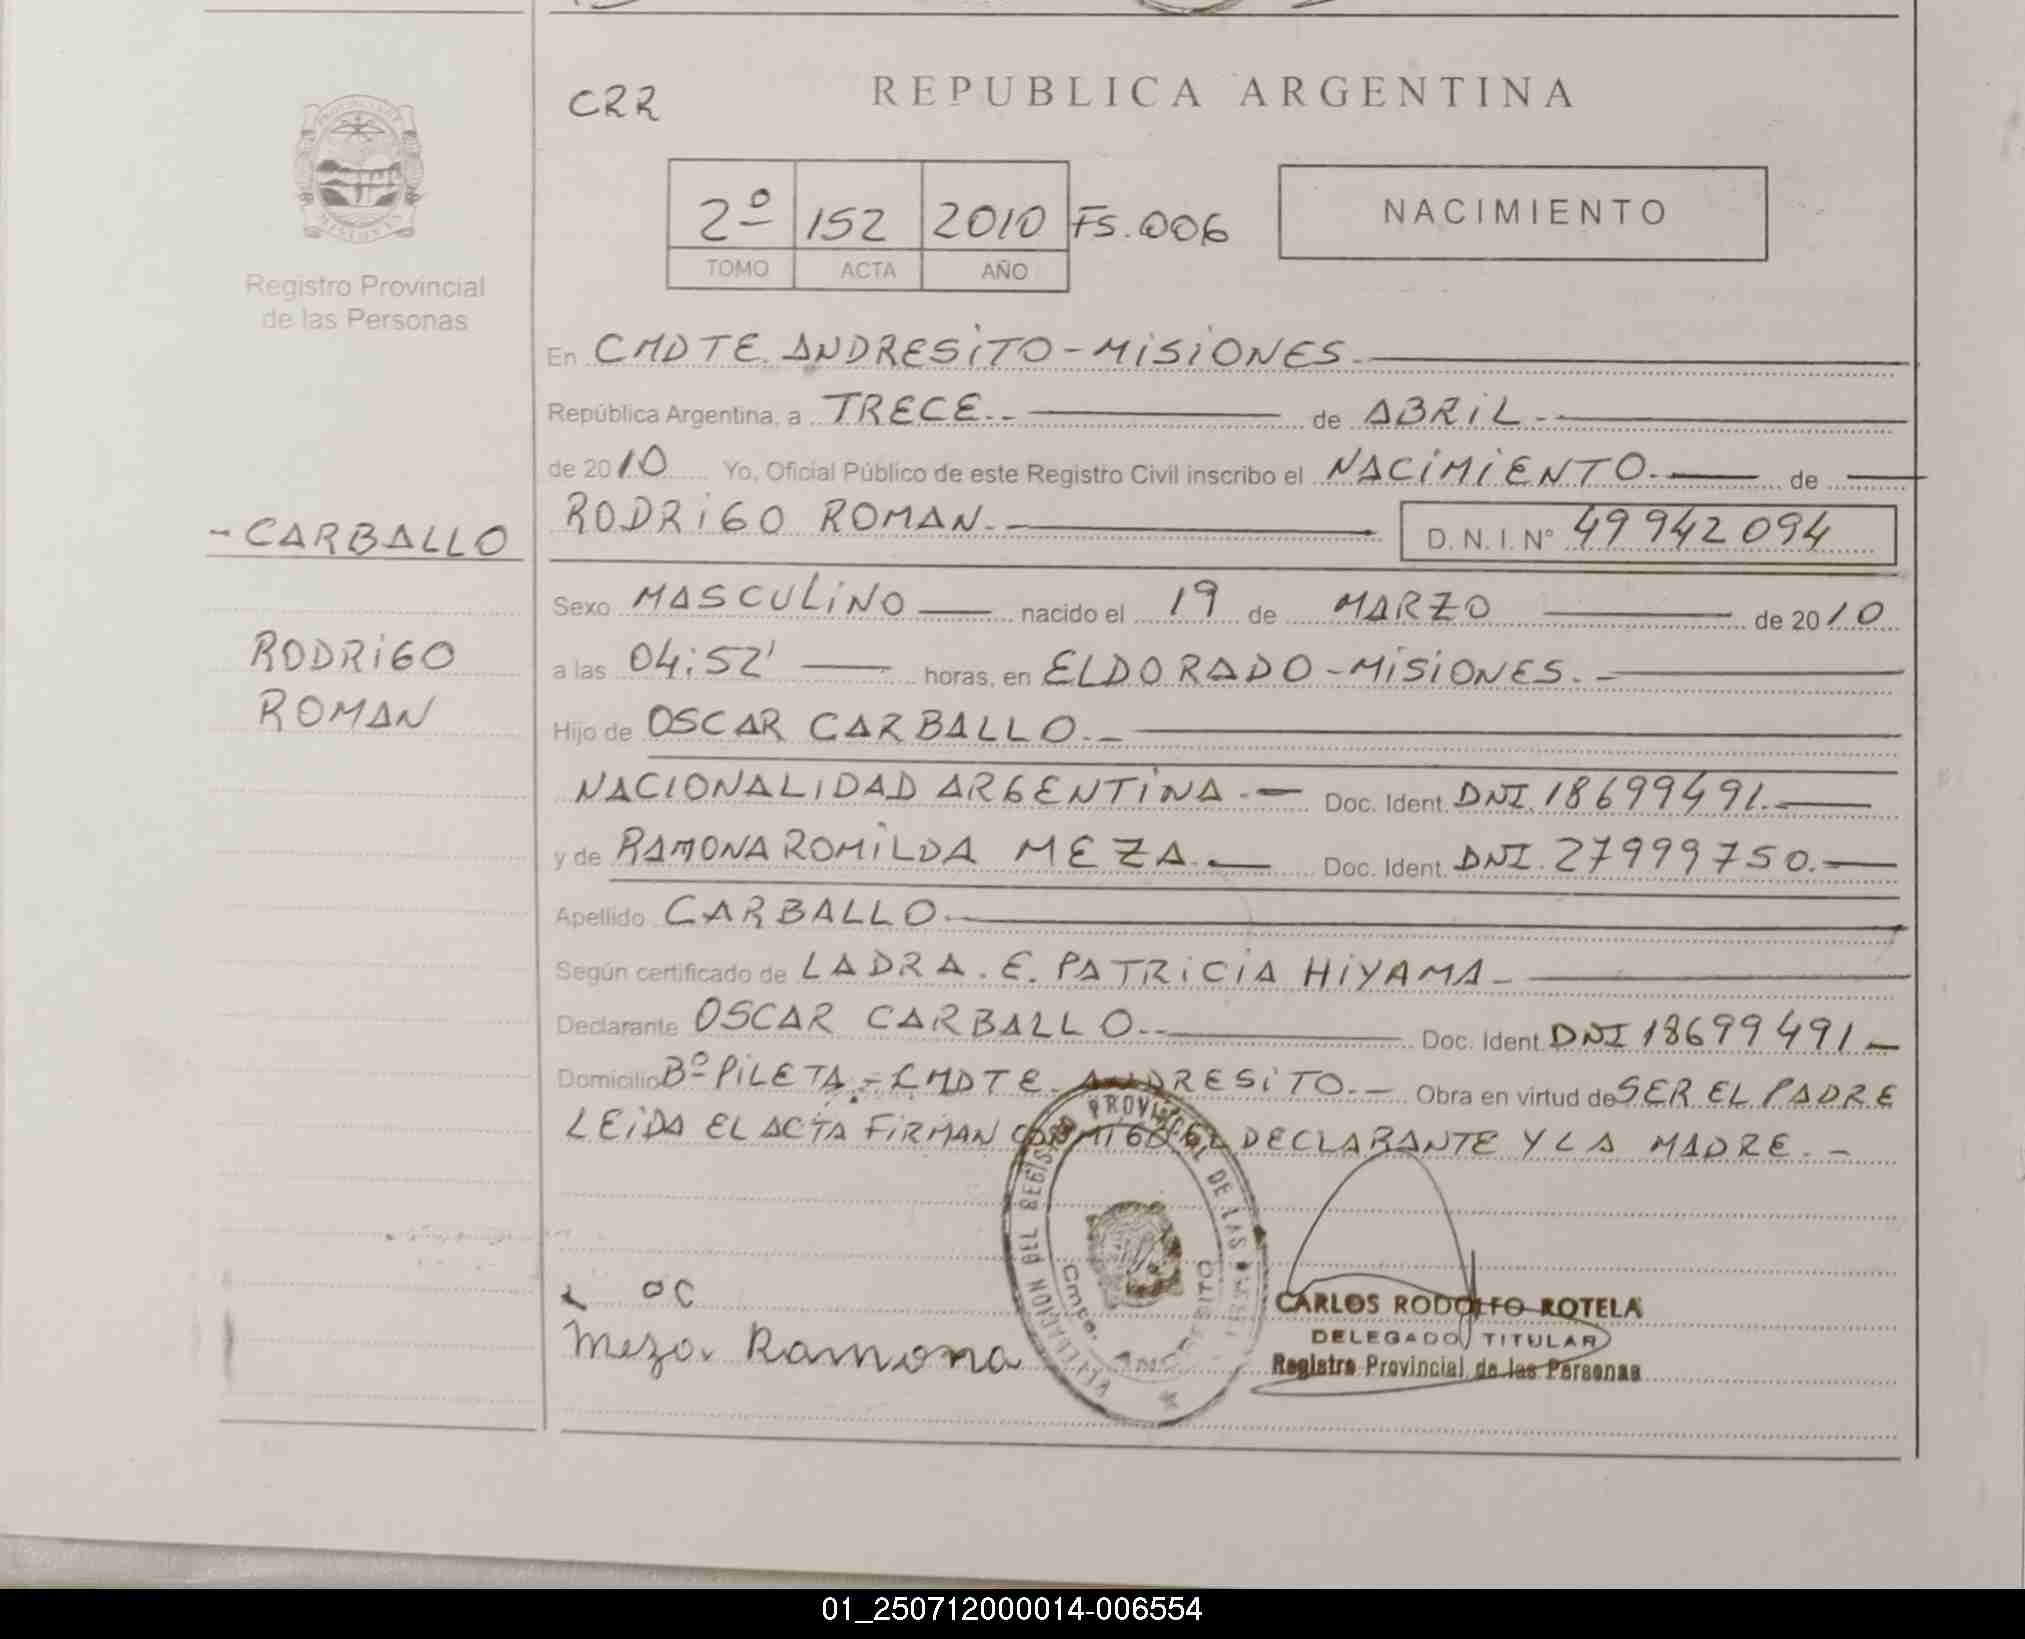 CRR
REPUBLICA ARGENTINA
2º 152 2010 Fs. 006
TOMO ACTA AÑO
NACIMIENTO
Registro Provincial
de las Personas
En CMDTE. ANDRESiTO - MiSiONES.
República Argentina, a TRECE. de ABRiL.
de 2010 Yo, Oficial Público de este Registro Civil inscribo el NACiMiENTO. de
RODRiGO ROMAN. D. N. I. N° 49942094
- CARBALLO
RODRiGO
ROMAN
Sexo MASCULiNO nacido el 19 de MARZO de 2010
a las 04:52' horas, en ELDORADO - MiSiONES.
Hijo de OSCAR CARBALLO.
NACIONALIDAD ARGENTiNA. Doc. Ident. DNI. 18699491.
y de RAMONA ROMiLDA MEZA. Doc. Ident. DNI. 27999750.
Apellido CARBALLO.
Según certificado de LA DRA. E. PATRiCiA HiYAMA
Declarante OSCAR CARBALLO. Doc. Ident. DNI 18699491
Domicilio Bº PiLETA. - CMDTE. ANDRESiTO. Obra en virtud de SER EL PADRE
LEiDA EL ACTA FiRMAN CONMiGO EL DECLARANTE Y LA MADRE. -
OC
Meza Ramona
DELEGACION DEL REGISTRO PROVINCIAL DE LAS
Cmte. ANDRESITO
CARLOS RODOLFO ROTELA
DELEGADO TITULAR
Registro Provincial de las Personas
01_250712000014-006554